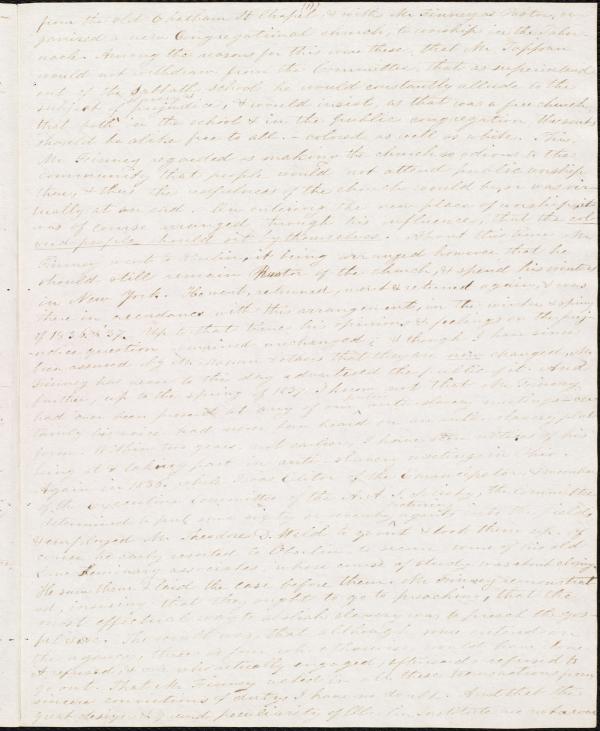 from the old Chatham St Chapel, & with Mr Finney as Pastor, or-
ganized a new Congregational church, to worship in the Taber-
nacle. Among the reasons for this were these, that Mr Tappan
would not withdraw from the Committee, that as superintend
out of the Sabbath school he would constantly allude to the
subject of prejudice, & would insist, as that was a free church,
that both in the school & in the public congregation the seats
should be alike free to all - colored as well as white. This,
Mr Finney regarded as making the church so odious to the
community that people would not attend public worship
there, & thus the usefulness of the church would be, or was vir-
tually at an end. On entering the new place of worship it
was of course arranged, through his influence, that the col-
ored people should sit by themselves. About this time Mr
Finney went to Oberlin, it being arranged however that he
should still remain Pastor of the church, & spend his winters
in New York. He went, returned, went & returned again, & was
there in accordance with this arrangement, in the winter & spring
of 1836 & 37. Up to that time his opinions & feelings on the prej-
udice question remained unchanged; & though I have since
been assured by Mr Mahan & others that they are now changed, Mr
Finney has never to this day advertised the public of it. And
further, up to the spring of 1837 I know not that Mr Finney
had ever been present at any of our public anti-slavery meetings - cer-
tainly his voice had never been heard on an anti-slavery plat-
form. Within two years, not earlier, I have seen notices of his
being at & taking part in anti-slavery meetings in Ohio.
Again in 1836, while I was Editor of the Emancipator, & member
of the Executive Committee of the A. A. S. Society, the Committee
determined to put some sixty or seventy agents into the field,
& employed Mr Theodore D. Weld to go out & look them up. Of
course he early resorted to Oberlin to secure some of his old
Lane Seminary associates, whose course of study was about closing.
He saw them & laid the case before them. Mr Finney remonstrat
ed, insisting that they ought to go to preaching, that the
most effectual way to abolish slavery was to preach the gos-
pel &c. The result was, that although some entered on
the agency, there were four who otherwise would have done
& refused, & one who actually engaged, afterward refused to
go out. That Mr Finney acted in all these transactions from
sincere convictions of duty, I have no doubt. And that the
great design & grand peculiarity of Oberlin Institute are not a con